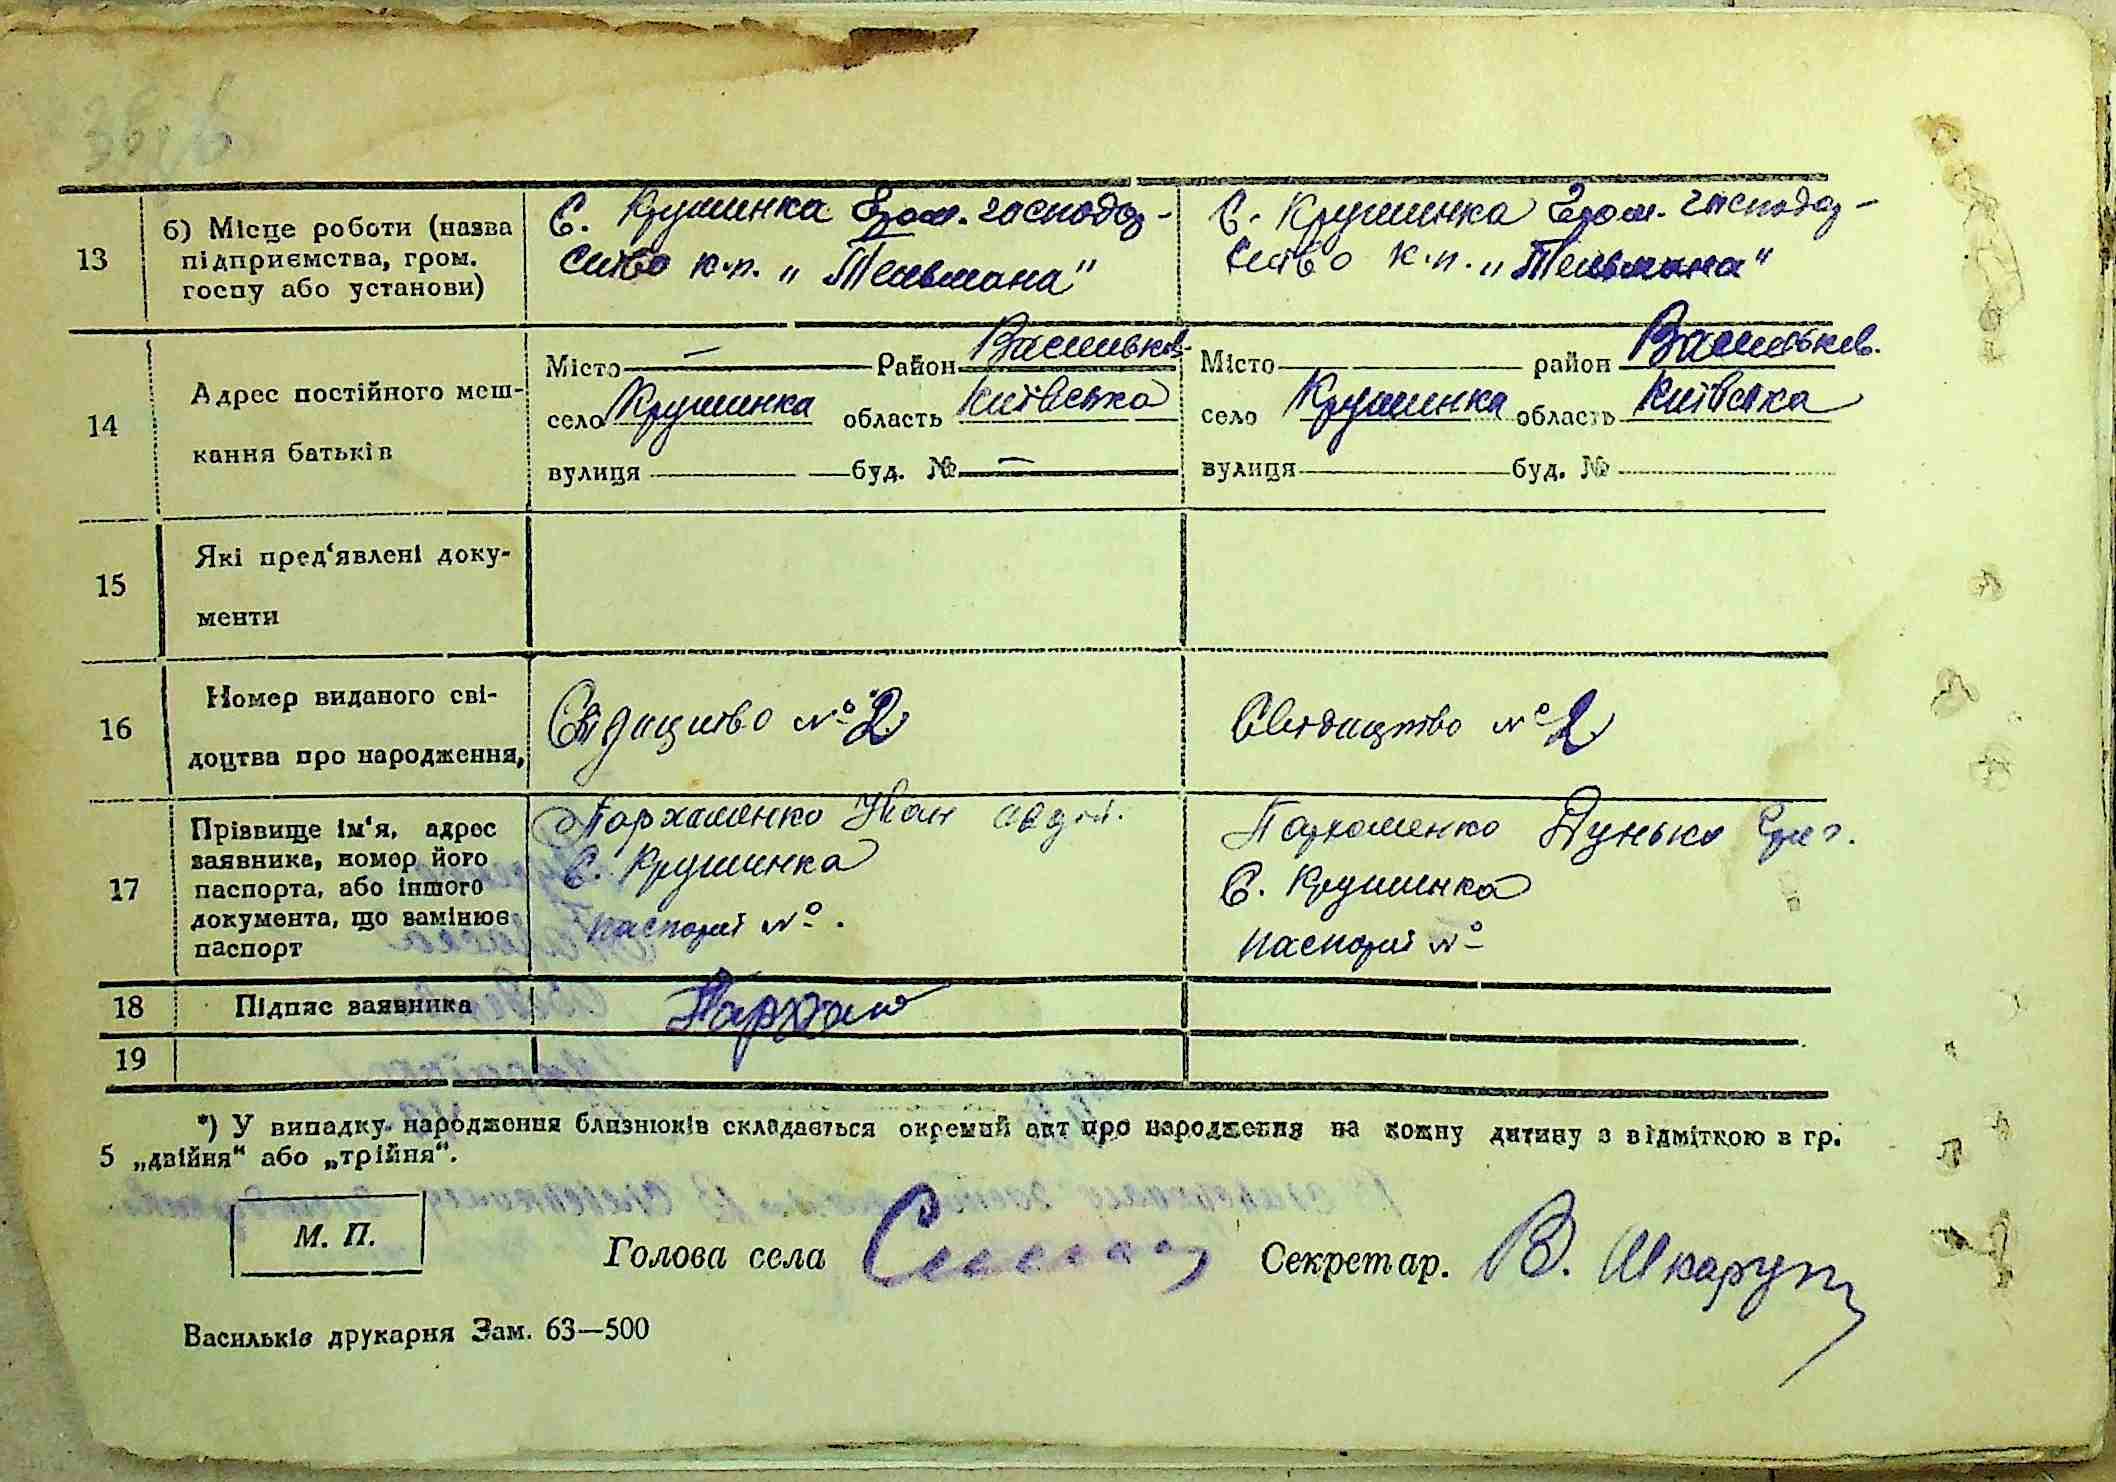 13
б) Місце роботи (назва
підприємства, гром.
госпу або установи)
с. Крушинка Гром. господар-
ство к.п. „Тельмана"
с. Крушинка Гром. господар-
ство к.п. „Тельмана"
14
Адрес постійного меш-
кання батьків
Місто — Район Васильков.
село Крушинка область Київська
вулиця — буд. № —
Місто район Васильков.
село Крушинка область Київська
вулиця буд. №
15
Які пред'явлені доку-
менти
16
Номер виданого сві-
доцтва про народження,
Свідицтво № 2
Свідицтво № 2
17
Прізвище ім'я, адрес
заявника, номер його
паспорта, або іншого
документа, що замінює
паспорт
Пархоменко Иван Авдій.
с. Крушинка
паспорт № .
Пархоменко Дунька Григ.
с. Крушинка
паспорт №
18
Підпис заявника
Пархом
19
*) У випадку народження близнюків складається окремий акт про народження на кожну дитину з відміткою в гр.
5 „двійня" або „трійня".
М. П.
Голова села
Секретар. В. Шкаруп
Васильків друкарня Зам. 63—500